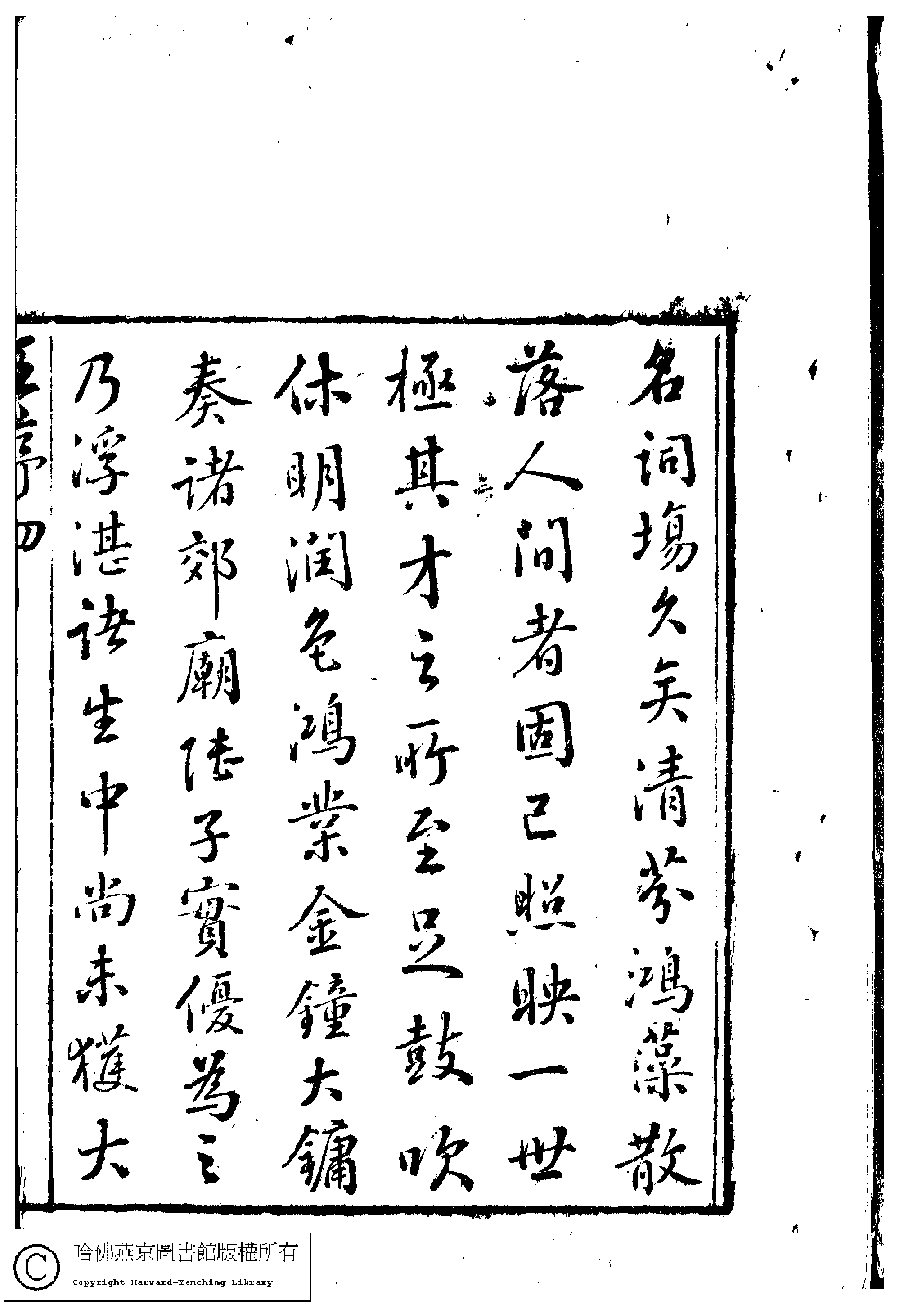 名詞塲久矣清芬鴻藻散
落人間者固已照映一世
極其才之所至足鼓吹
休明潤色鴻業金鐘大鏞
奏諸郊廟陸子實優為之
乃浮湛諸生中尚未獲大
王序 四
哈佛燕京圖書館版權所有
Copyright Harvard-Yenching Library